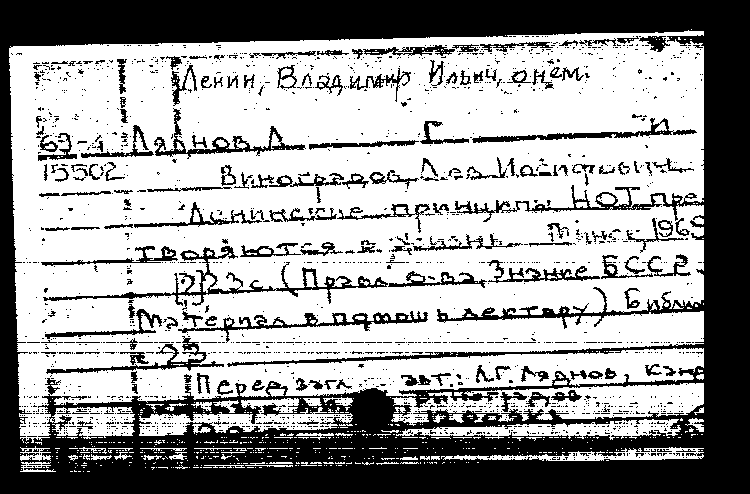 Ленин, Владимир Ильич, о нем.
69-4 Ляднов, Л Г и
15502 Виноградов, Лев Иосифович.
Ленинские принципы НОТ пре
творяются в жизнь. Минск, 1969
[2] 23 с. (Правл. о-ва "Знание" БССР.
Материал в помошь лектору). Библио
с. 23.
Перед загл. авт.: Л.Г. Ляднов, канд
Виноградов.